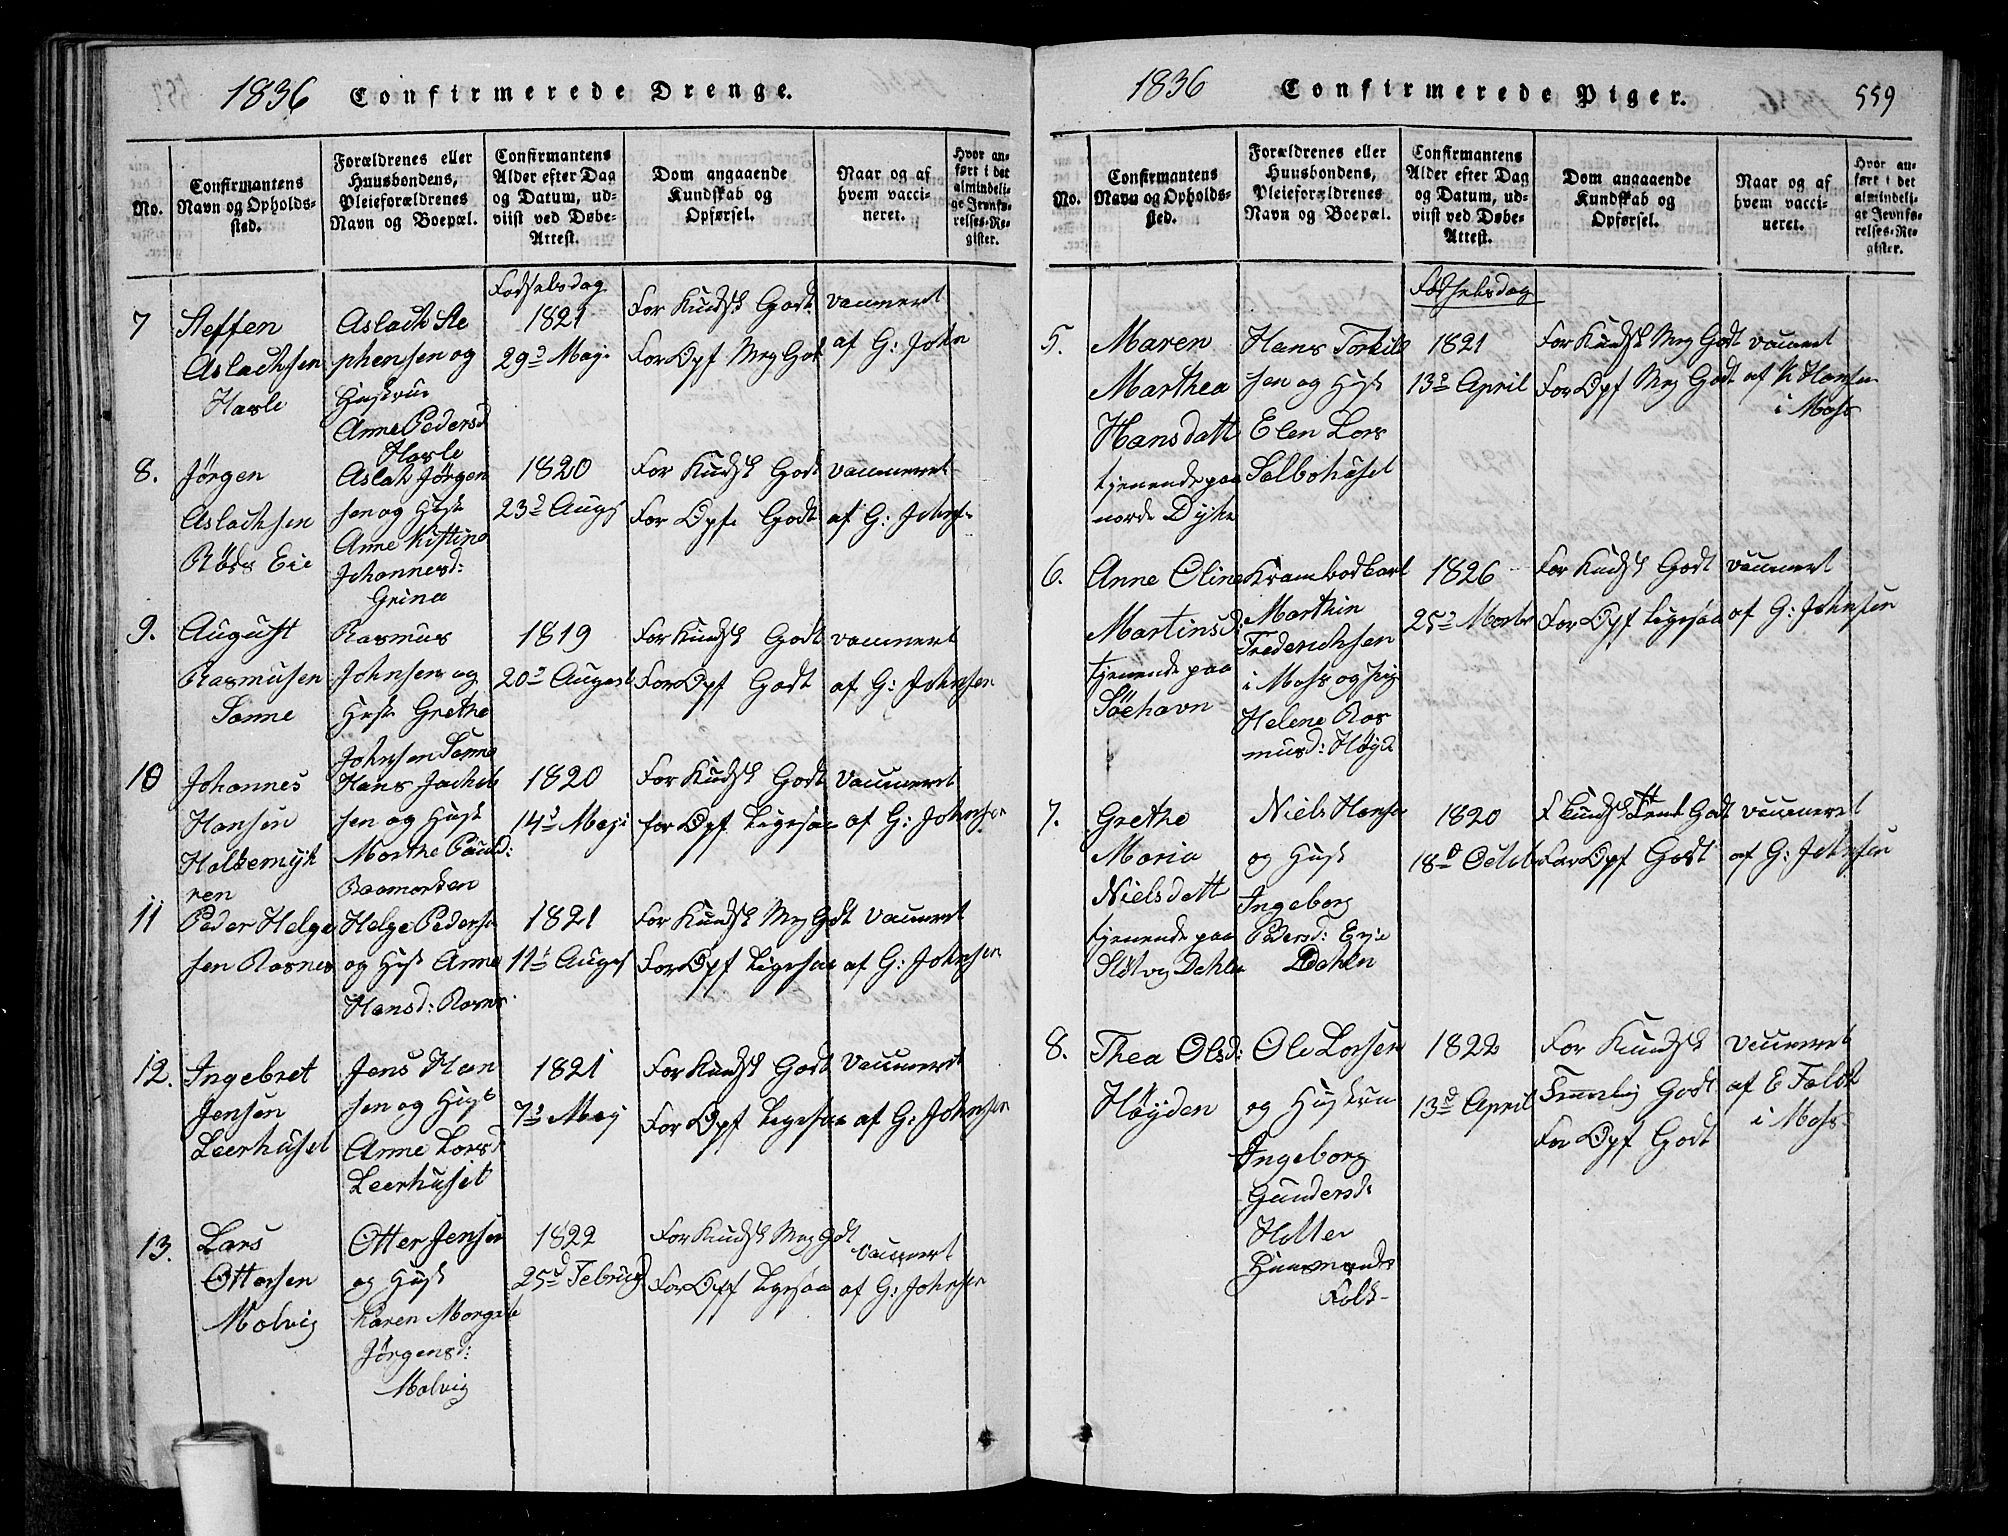 1836 Confirmerede Drenge.
No.
Confirmantens
Navn og Opholds-
sted.
Forældrenes eller
Huusbondens,
Pleieforældrenes
Navn og Boepæl.
Confirmantens
Alder efter Dag
og Datum, ud-
viist ved Døbe-
Attest.
Dom angaaende
Kundskab og
Opførsel.
Naar og af
hvem vacci-
neret.
Hvor an-
ført i det
almindeli-
ge Jevnfø-
relses-Re-
gister.
Fødselsdag
7
Steffen
Aslachsen
Harle
Aslach Ste
phensen og
Hustrue
Anne Pedersd
Harle
1821
29d Maji
For Kundsk Godt
For Opf Meg Godt
vacineret
af G: John
8.
Jørgen
Aslachsen
Røds Eie
Aslak Jørgen
sen og Hust
Anne Kistine
Johannesd:
Grina
1820
23d Augs
For Kundsk Godt
For Opf: Godt
vacineret
af G: Johns
9.
August
Rasmusen
Sonne
Rasmus
Johnsen og
Hust Grethe
Johnsen Sonne
1819
20d August
For Kundsk Godt
For Opf Godt
vacineret
af G: Johnsen
10
Johannes
Hansen
Holkemyh
ren
Hans Jachob
sen og Hust
Marthe Pauld:
Raamorken
1820
14d Maji
For Kundsk Godt
for Opf Ligesaa
vacineret
af G: Johnsen
11
Peder Helge
sen Rosnes
Helge Pedersen
og Hust Anne
Hansd: Rosnes
1821
11d Augs
For Kundsk Meg Godt
For Opf Ligesaa
vacineret
af G: Johnsen
12.
Ingebret
Jensen
Leerhuset
Jens Han
sen og Hust
Anne Larsd
Leerhuset
1821
7d Maj
For Kundsk Godt
For Opf Ligesaa
vacineret
af G: Johnsen
13.
Lars
Ottersen
Molvig
Otter Jensen
og Hust
Karen Margrete
Jørgensd:
Molvig
1822
25d Februar
For Kundsk Meg Godt
For Opf Ligesaa
vacineret
af G: Johnsen
1836 Confirmerede Piger.
559
No.
Confirmantens
Navn og Opholds-
sted.
Forældrenes eller
Huusbondens,
Pleieforældrenes
Navn og Boepæl.
Confirmantens
Alder efter Dag
og Datum, ud-
viist ved Døbe-
Attest.
Dom angaaende
Kundskab og
Opførsel.
Naar og af
hvem vacci-
neret.
Hvor an-
ført i det
almindeli-
ge Jevnfø-
relses-Re-
gister.
Fødselsdag
5.
Maren
Marthea
Hansdatt
tjenende paa
nordre Dyhre
Hans Torkild
sen og Hust
Elen Lars
Salbohuset
1821
13d April
For Kundsk Meg Godt
For Opf Meg Godt
vacineret
af K Hansen
i Moss
6.
Anne Oline
Martinsd
tjenende paa
Søehavn
Krambodkarl
Marthin
Frederichsen
i Moss og Pig
Helene Ras
musd: Høyd
1826
25d Marts
For Kundsk Godt
For Opf Ligesaa
vacineret
af G: Johnsen
7.
Grethe
Maria
Nielsdatt
tjenende paa
Sletvig Dehlen
Niels Hansen
og Hust
Ingeborg
Pedersd: Eeje
Dehlen
1820
18d Octob
F Kundsk Teml Godt
For Opf Godt
vacineret
af G: Johnsen
8.
Thea Olsd:
Høyden
Ole Larsen
og Hustrue
Ingeborg
Gundersd:
Holter
Huusmands
Folk
1822
13d April
For Kundsk
Temelig Godt
For Opf Godt
vacineret
af E Falck
i Moss